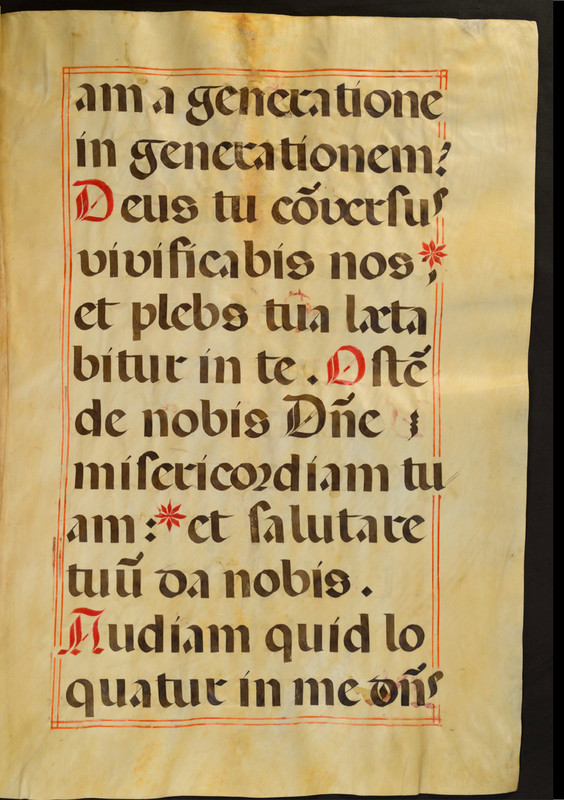 am a generatione
in generationem?
Deus tu cõversus
vivificabis nos;*
et plebs tua læta
bitur in te. Ostẽ
de nobis Dñe ;
misericordiam tu
am:*et salutare
tuũ da nobis.
Audiam quid lo
quatur in me dñs